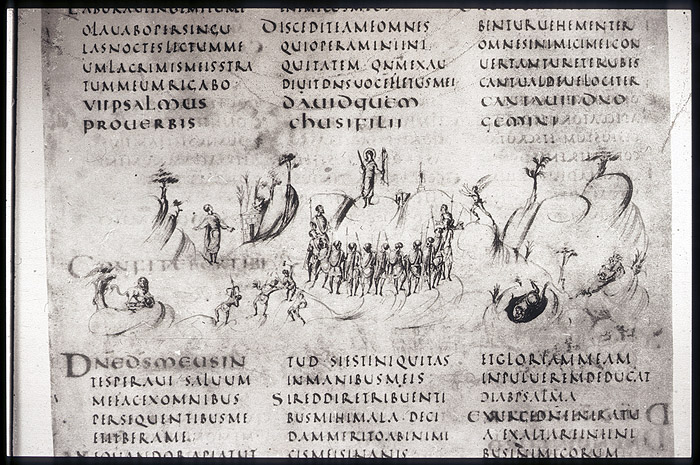 OLAUABOPERSINGU
LASNOCTESLECTUMME
UMLACRIMISMEISSTRA
TUMMEUMRICABO
DISCEDITEAMEOMNES
QUIOPERAMINIINI
QUITATEM QNMEXAU
DIUITDNSUOCEFLETUSMEI
BENTURUEHEMENTER
OMNESINIMICIMEICON
UERTANTURETERUBES
CANTUALDEUELOCITER
VIIPSALMUS DAUIDQUEM CANTAUITDNO
PROUERBIS CHUSIFILII GEMINI
DNEDSMEUSIN
TESPERAUI SALUUM
MEFACEXOMNIBUS
PERSEQUENTIBUSME
ETLIBERAME
TUD SIESTINIQUITAS
INMANIBUSMEIS
SIREDDIRETRIBUENTI
BUSMIHIMALA DECI
DAMMERITOABINIMI
CISMEISINANIS
ETGLORIAMMEAM
INPULUEREMDEDUCAT
DIAPSALMA
EXURGEDNEINIRATU
A EXALTAREINFINI
BUSINIMICORUM